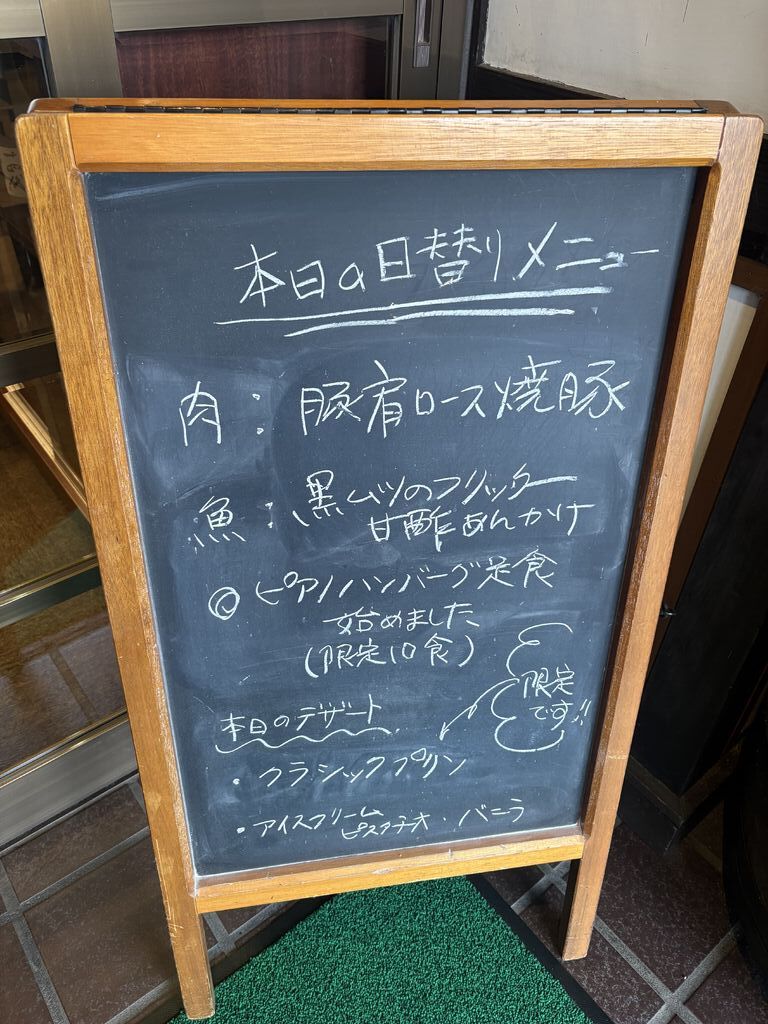 本日の日替りメニュー
肉：豚肩ロース焼豚
魚：黒ムツのフリッター
甘酢あんかけ
◎ピアノハンバーグ定食
始めました
(限定10食)
限定
です!!
本日のデザート
・クラシックプリン
・アイスクリーム
ピスタチオ・バニラ